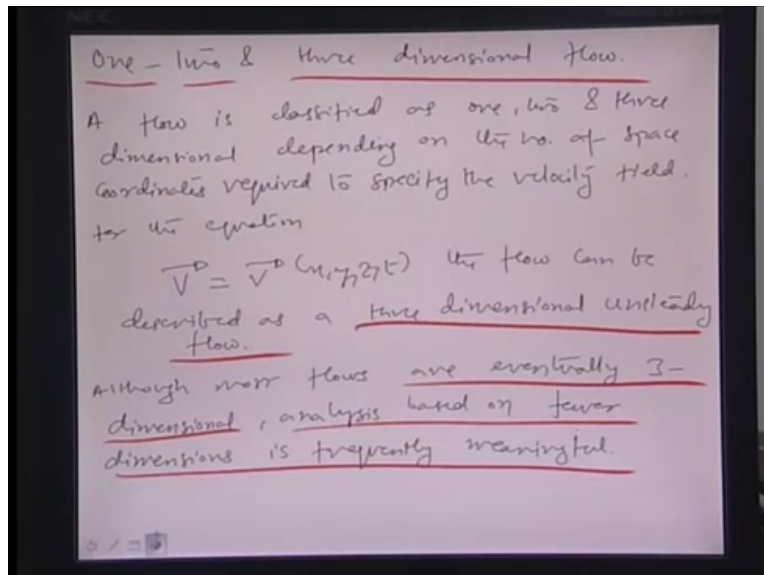 NEC
One - Two & three dimensional flow.
A flow is classified as one, two & three
dimensional depending on the no. of space
coordinates required to specify the velocity field.
for the equation
V⃗ = V⃗ (x,y,z,t) the flow can be
described as a three dimensional unsteady
flow.
Although most flows are eventually 3-
dimensional, analysis based on fewer
dimensions is frequently meaningful.